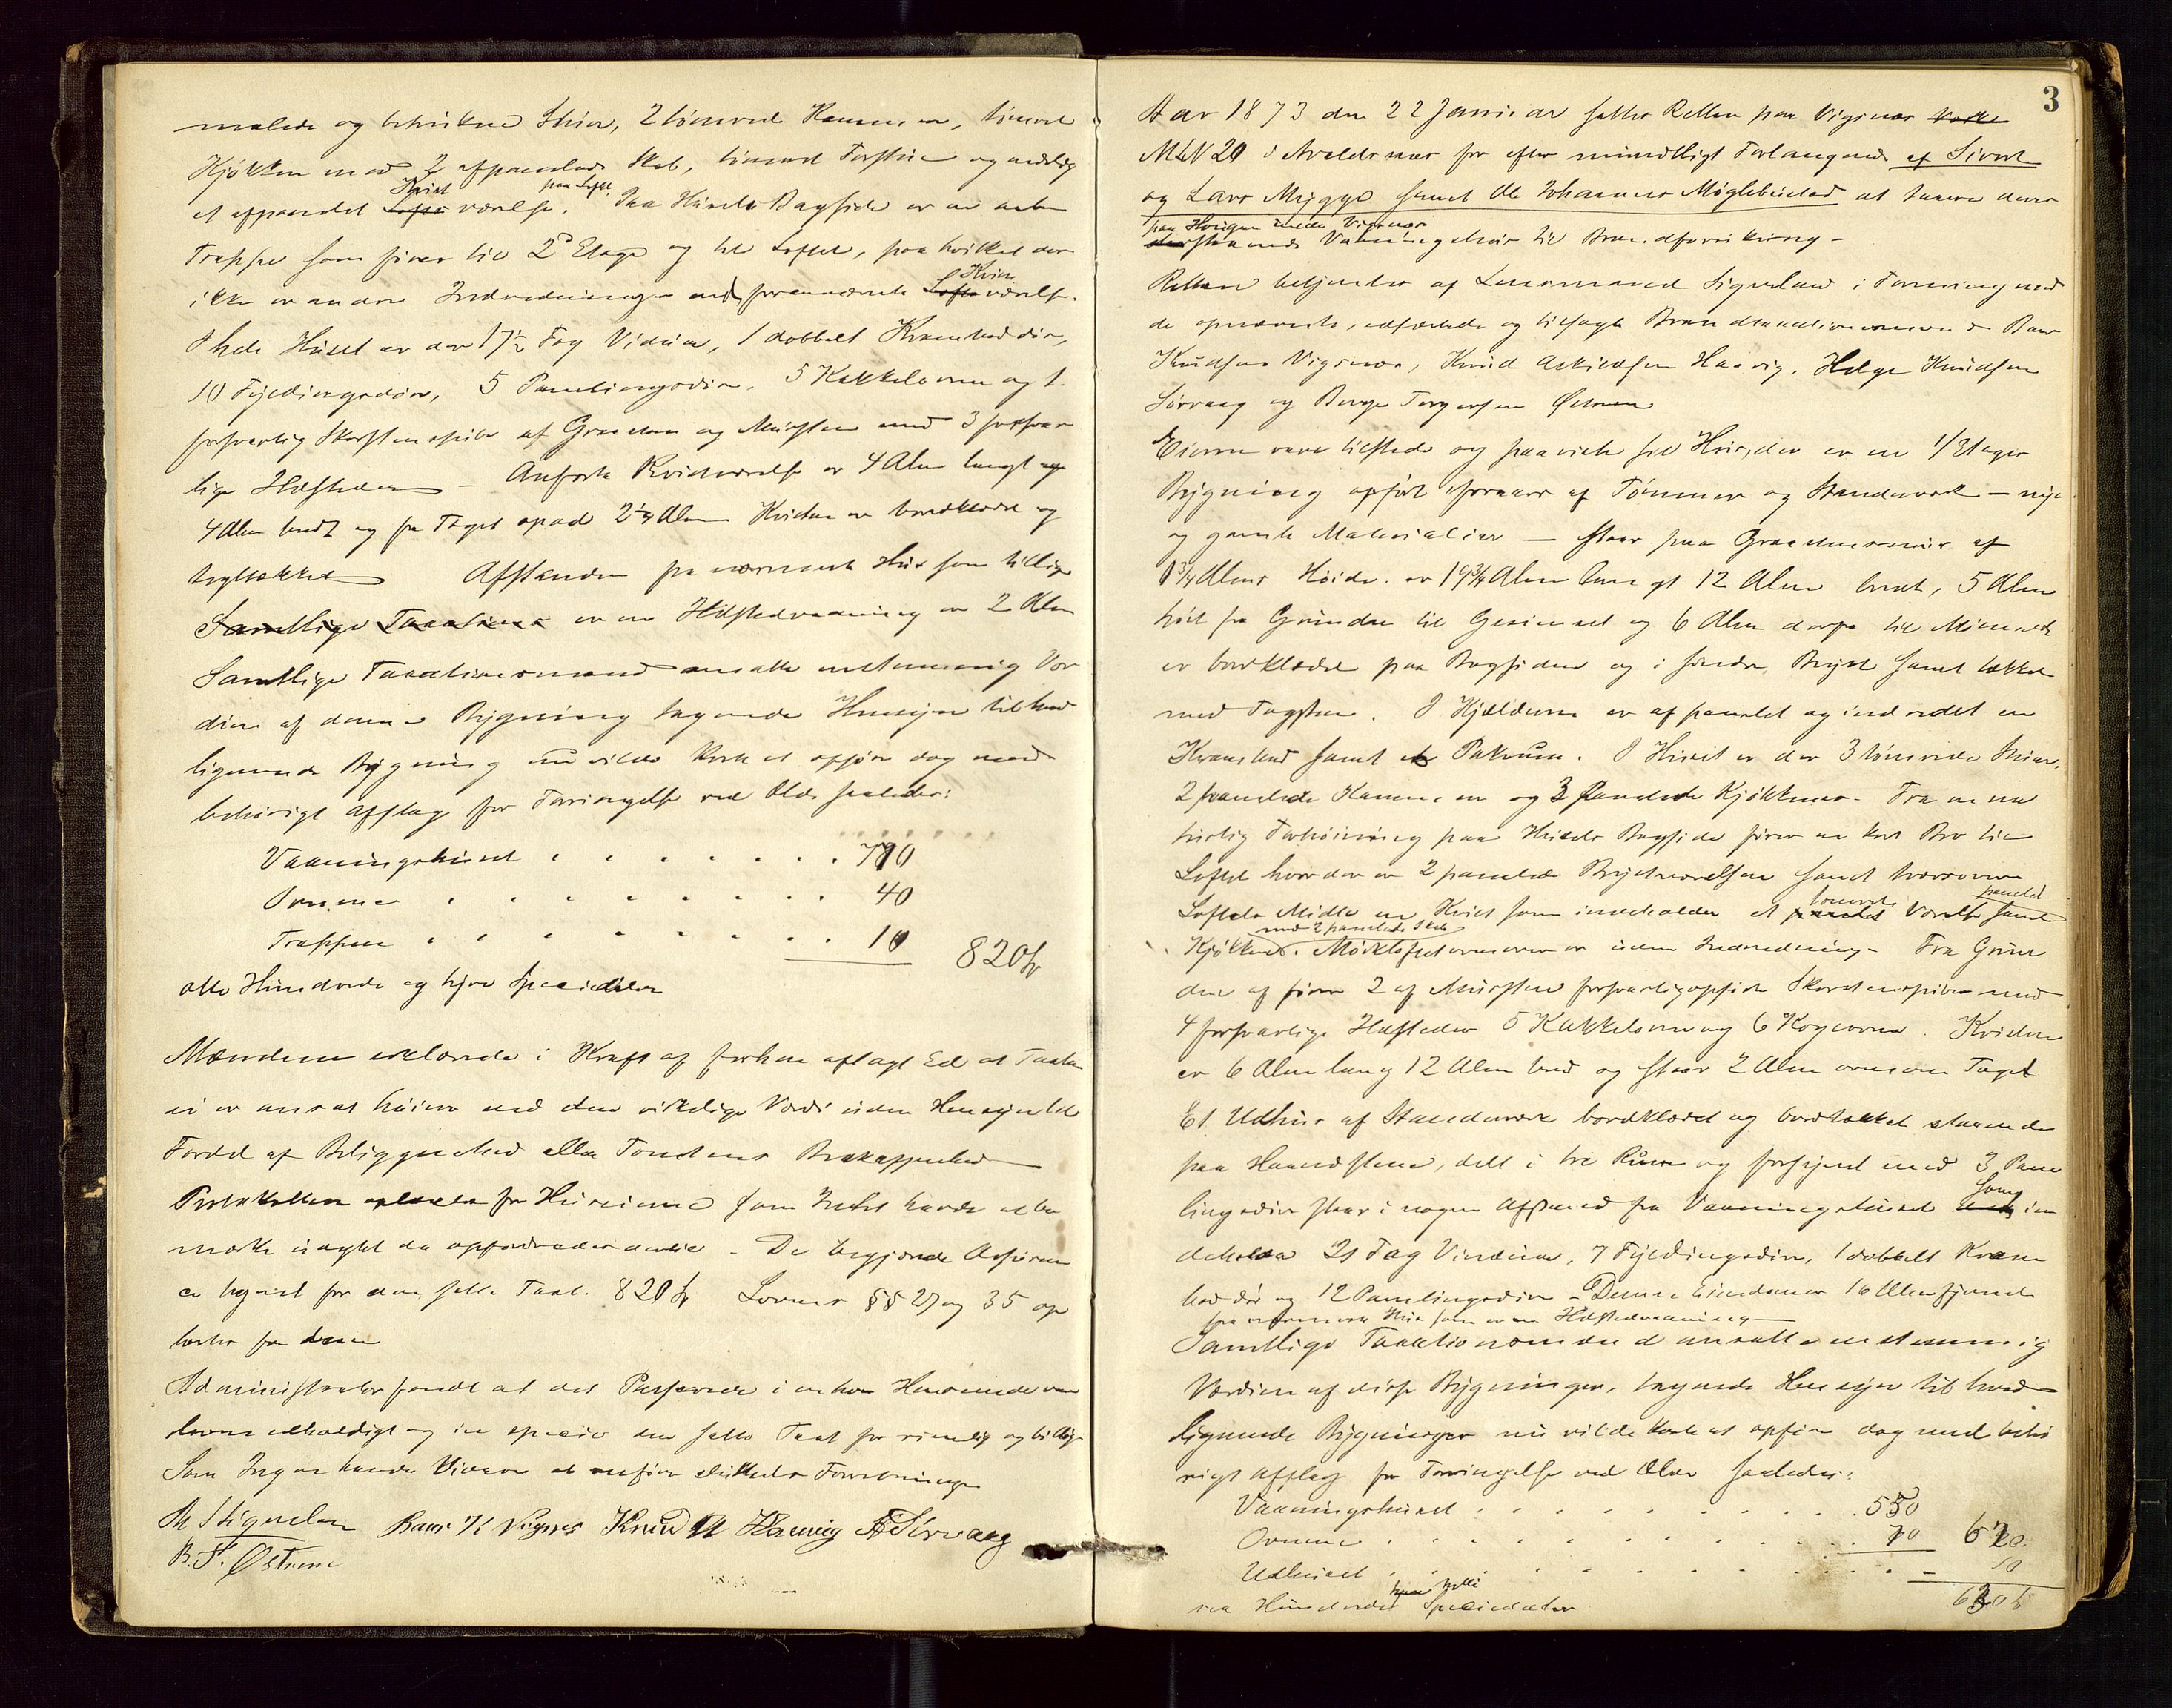 malede og betrukne Stuer, 2 tømrede Kammere, tømret
Kjøkken med 2 afpanelede Skab, tømret Forstue og endelig
et afpanelet Lofts Kvist værelse paa Loftet. Paa Husets Bagside er en
Trappe som fører til 2den Etage og til Loftet, paa hvilket der
ikke er anden Indredninger end forannævnte Lofts Kvist værelse.
I hele Huset er der 17½ Fag Vinduer, 1 dobbelt Krambod dør,
10 Fyldingsdøre, 5 Panelingsdøre, 5 Kakkelovne og 1
forsvarlig Skorstenspibe af Graasten og Mursten med 3 forsvar
lige Ildsteder — Anførte Kvistværelse er 4 Alen langt og
4 Alen bredt og fra Taget opad 2¼ Alen Kvisten er bordklædt og
teglhækket Afstanden fra nærmeste Hus som tillige
Samtlige Taxations er en Ildstedvaaning er 2 Alen
Samtlige Taxationsmænd ansatte enstemmig Vær
dien af denne Bygning tagende Hensyn til hvad
lignende Bygning nu vilde koste at opføre dog med
behørigt Afslag for Forringelse ved Ælde saaledes:
Vaaningshuset . . . . . . . 770
Ovnene . . . . . . . . 40
Trappen . . . . . . . . 10 820
otte Hundrede og tyve Speciedaler
Mændene erklærede i Kraft af forhen aflagt Ed at Taxten
ei er ansat høiere end den virkelige Værdi uden Hensyn til
Fordel af Beliggenhed eller Tomtens Beskaffenhed
Protokollen oplæstes for Huseierne som Intet havde at be
mærke uagtet de opfordredes dertil. De begjærede Assuran
ce tegnet for den fulde Taxt. 820 Lovens §§ 27 og 35 op
læstes for dem
Administrator fandt at det Passerede i enhver Henseende var
lovens medholdigt og in specie den satte Taxt for rimelig og billig
Som Ingen havde Videre at anføre sluttedes Forretningen
Signeland Baar K Vignes Knud A Haavig H Sørvaag
B. T. Østrem
3
Aar 1873 den 22 Januar sattes Retten paa Vigsnes
MLN 20 i Avaldsnes for efter mundtligt Forlangende af Sivert
og Lars Mygge samt Ole Johannes Møglebustad at taxere deres
paa Husgrund under Vigsnes
staaende Vaaningshus til Brandforsikring –
Retten betjentes af Lensmand Signeland i Forening med
de opnævnte, edfæstede og tilsagte Brandtaxationsmænd Baar
Knudsen Vigsnes, Knud Askildsen Haavig, Helge Knudsen
Sørvaag og Børge Torgersen Østrem
Eierne vare tilstede og paaviste sit Hus, der er en 1 Etages
Bygning opført iforaar af Tømmer og Standerværk — nye
og gamle Materialier — staar paa Graastensmur af
1¾ Alens Høide, er 19¾ Alen langt 12 Alen bredt, 5 Alen
høit fra Grunden til Gesimset og 6 Alen derfra til Mønnet
er bordklædt paa Bagsiden og i søndre Bryst samt tækket
med Tagsten. I Kjælderen er afpanelet og indredet en
Krambod samt et Pakrum. I Huset er der 3 tømrede Stuer,
2 panelede Kammere og 3 panelede Kjøkkener. Fra en na
turlig Forhøining paa Husets Bagside fører en kort Bro til
Loftet hvor der er 2 panelede Brystværelser samt tværsover
Loftets Midte en Kvist som indeholder et tømret Værelse samt panelet
Kjøkken med 2 panelede Skabe. Mørkloftet ovenover er uden Indredning – Fra Grun
den af fører 2 af Mursten forsvarlig opførte Skorstenspiber med
4 forsvarlige Ildsteder 5 Kakkelovne og 6 Kogeovne. Kvisten
er 6 Alen lang 12 Alen bred og staar 2 Alen ovenover Taget
Et Udhus af Standerværk bordklædt og bordtækket staaende
paa Haandstene, delt i tre Rum og forsynet med 3 Pane
lingsdøre staar i nogen Afstand fra Vaaningshuset som in
deholder 21 Fag Vinduer, 7 Fyldingsdøre, 1 dobbelt Kram
boddør og 12 Panelingsdøre – Denne Eiendom er 16 Alen fjernet
fra nærmeste Hus som er en Ildstedvaaning
Samtlige Taxationsmænd ansatte enstemmig
Værdien af disse Bygninger, tagende Hensyn til hvad
lignende Bygninger nu vilde koste at opføre dog med behø
rigt Afslag for Forringelse ved Ælde saaledes:
Vaaningshuset . . . . . . . . 550
Ovnene . . . . . . . . 70 620
Udhuset . . . . . . . . 10
sex Hundrede tredive Speciedaler 630